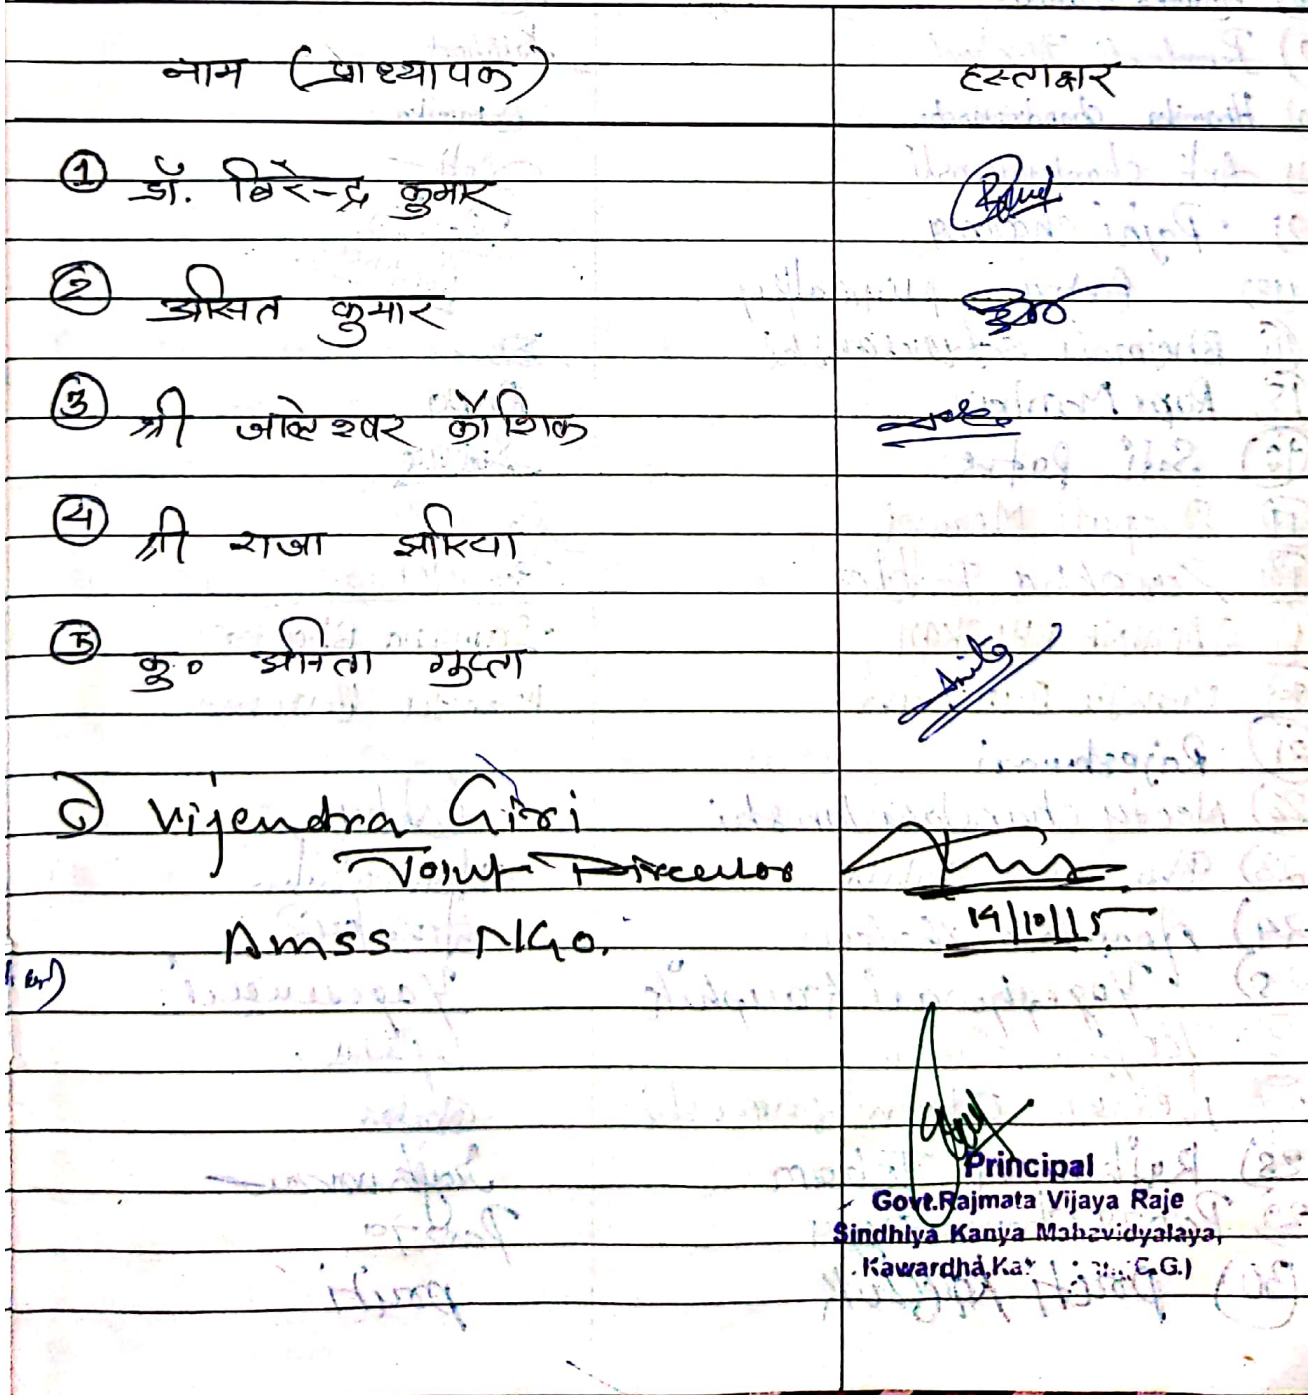 नाम (प्राध्यापक) हस्ताक्षर
① डॉ. बिरेन्द्र कुमार
② असित कुमार
③ श्री कौशिक
④ श्री राजा झारिया
⑤ कु० अनिता गुप्ता Anita
⑥ Vijendra Giri
Joint Director
14/10/15
Amss NGO.
Principal
Govt.Rajmata Vijaya Raje
Sindhiya Kanya Mahavidyalaya,
Kawardha, C.G.)